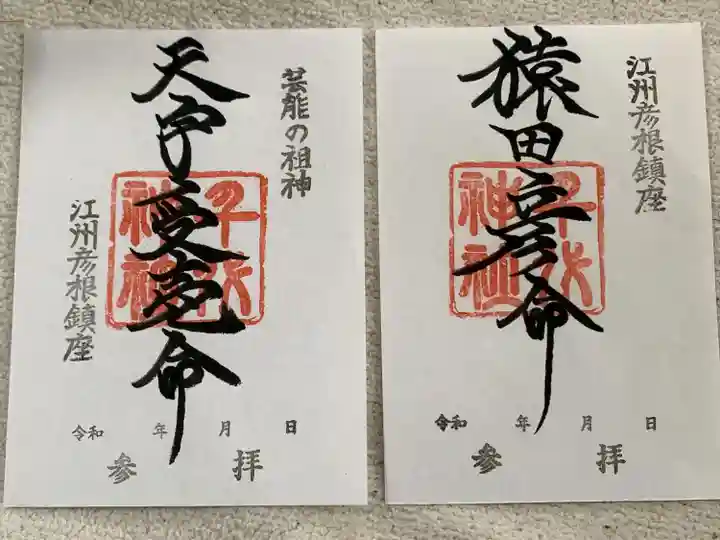 江州彦根鎮座
猿田彦命
千代
神社
令和 年 月 日
参拝
芸能の祖神
天宇受売命
千代
神社
江州彦根鎮座
令和 年 月 日
参拝